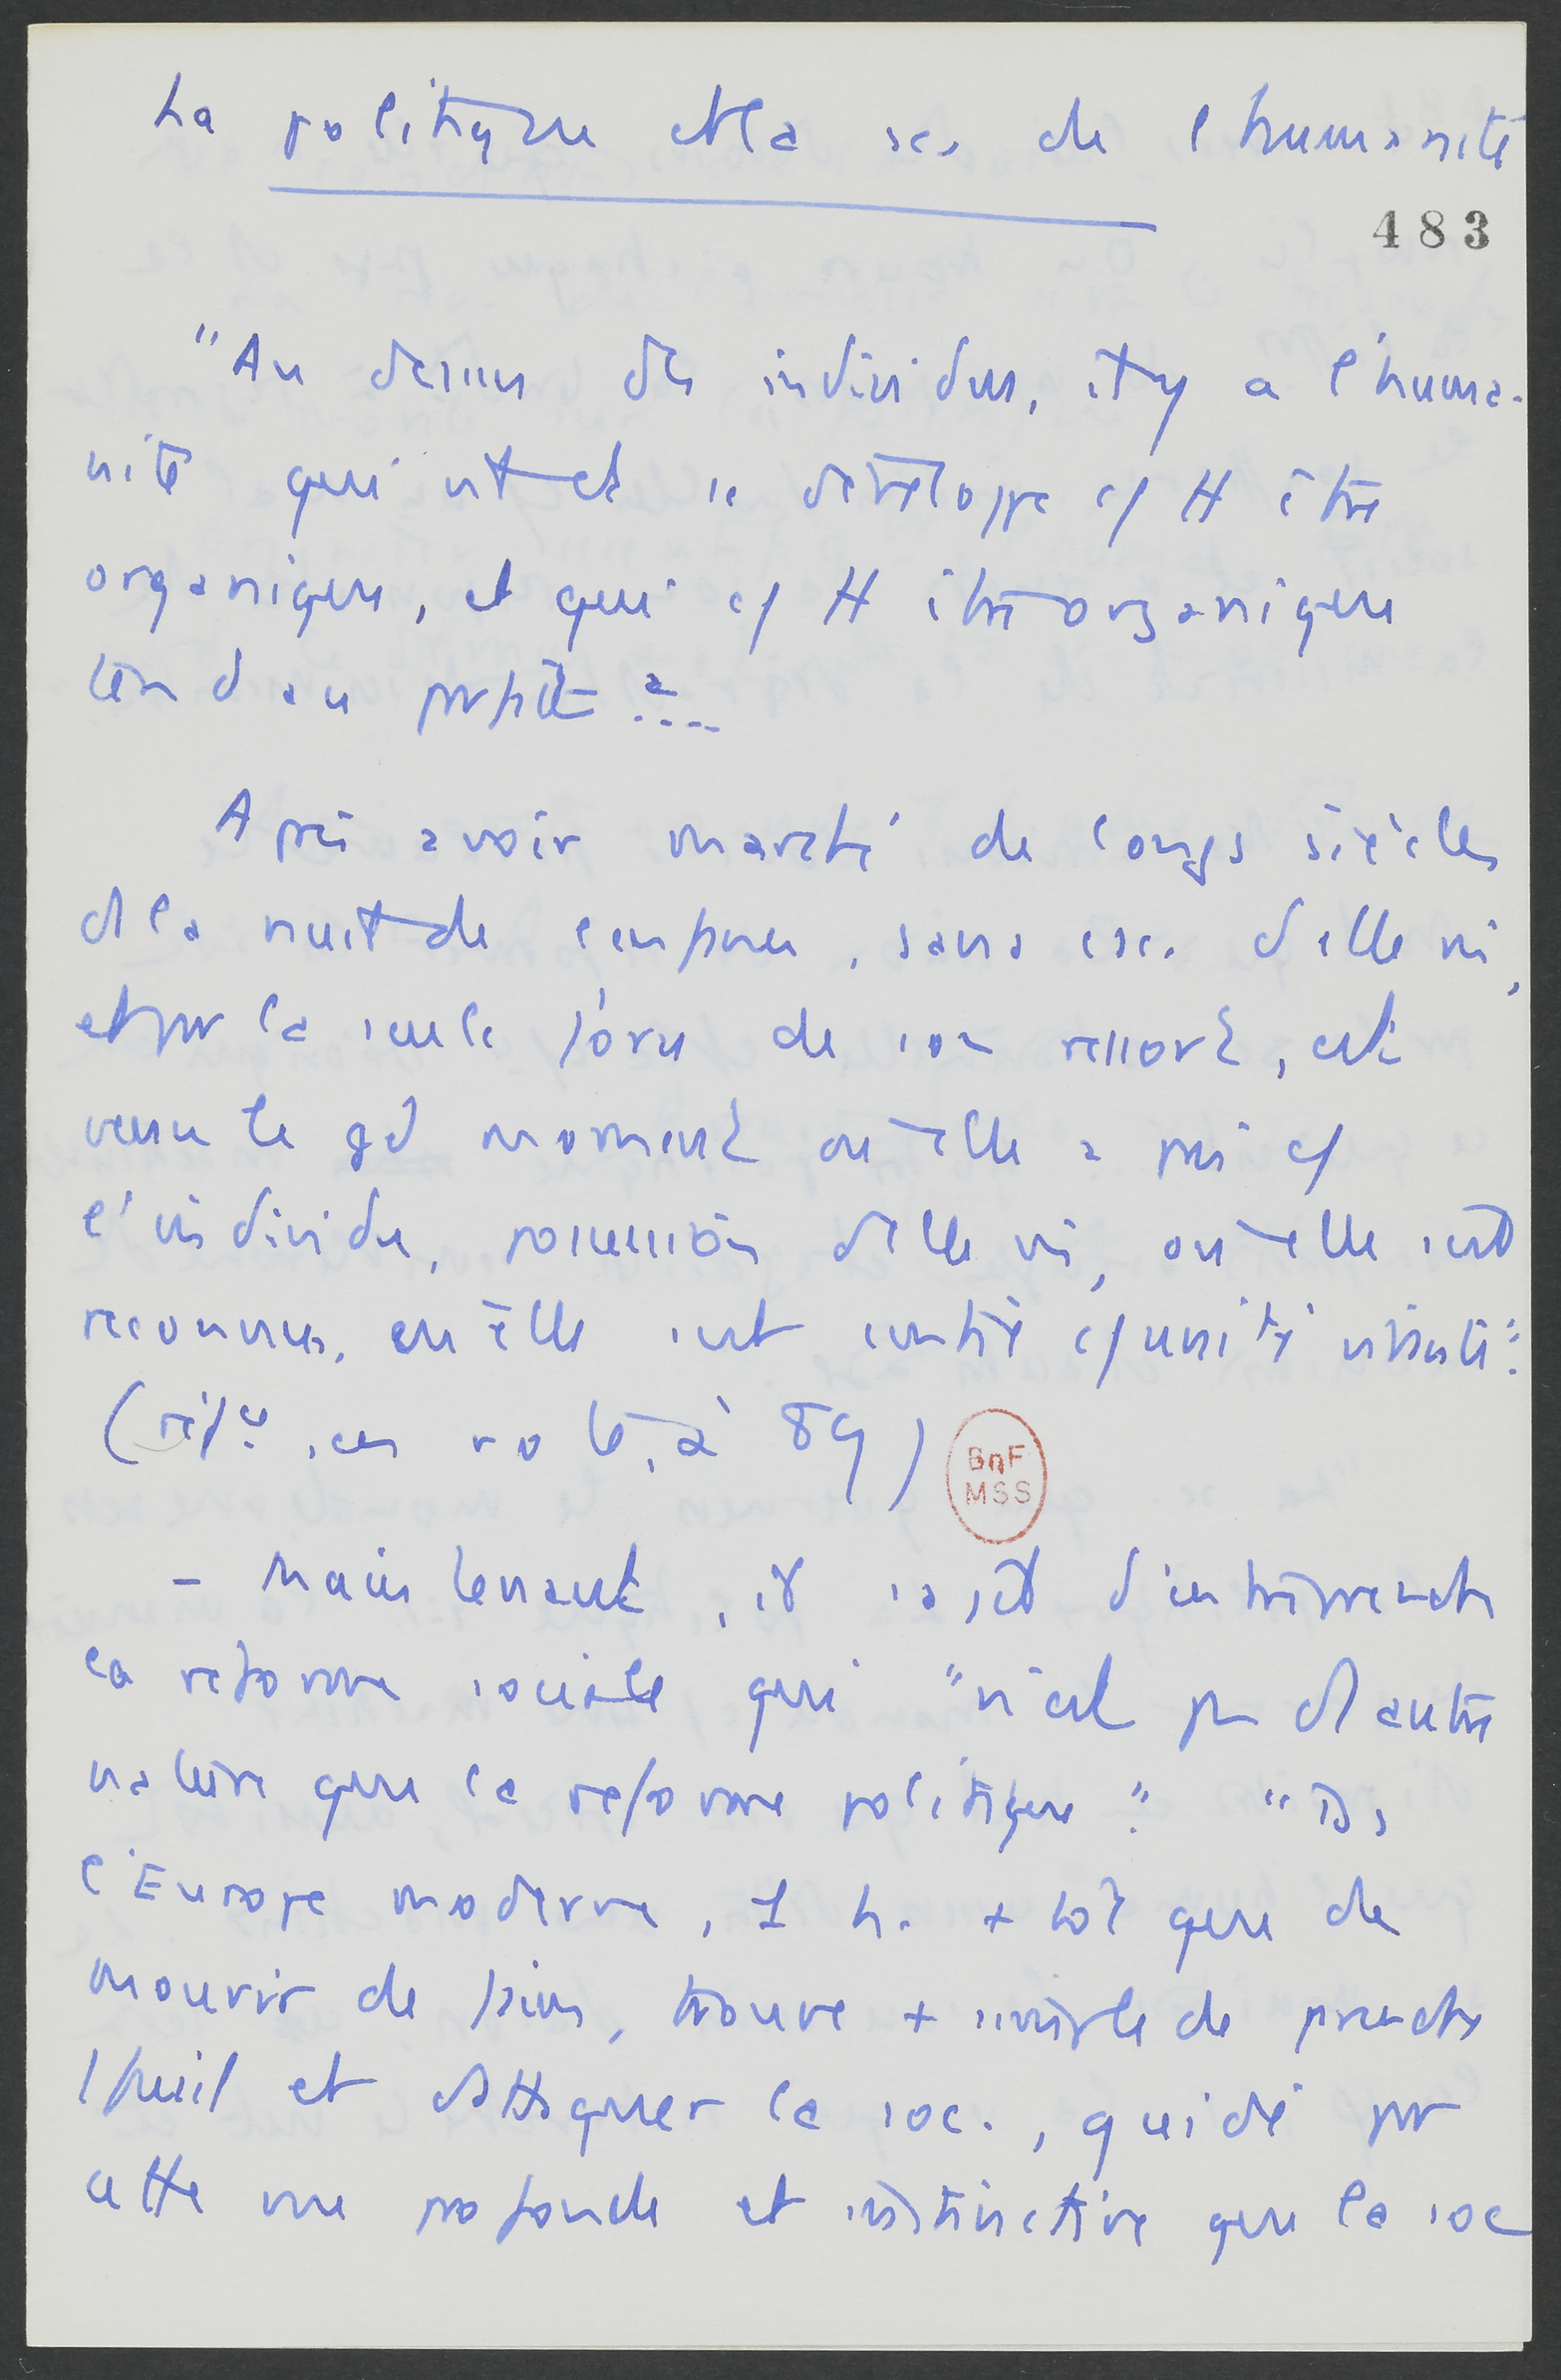 La politique et la sc. de l'humanité
483
"Au dessus des individus, il y a l'huma-
nité qui est et se développe c/ tt être
organique, et qui c/ tt être organique
tend au parfait"...
Après avoir marché de longs siècles
ds la nuit de l'enfance, sans csc. d'elle m̂,
et par la seule force de son ressort, est
venu le gd moment où elle a pris c/
l'individu, possession d'elle m̂, où elle s'est
reconnue, où elle s'est sentie c/ unité vivante".
à 89)
- Maintenant, il s'agit d'entreprendre
la réforme sociale qui "n'est pas d'autre
nature que la réforme politique". "Ds
l'Europe moderne, 1 h. + tôt que de
mourir de faim, trouve + simple de prendre
1 fusil et d'attaquer la soc., guidé par
cette vue profonde et instinctive que la soc
BnF
MSS